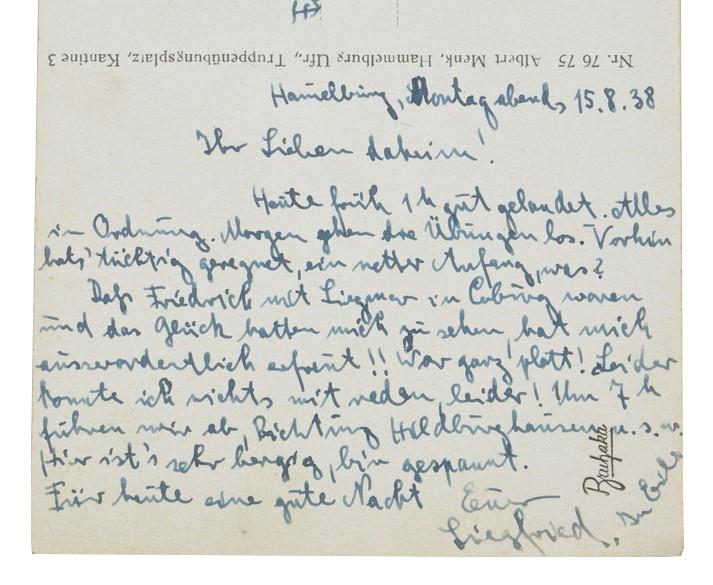 Nr. 76 75 Albert Menk, Hammelburg Ufr., Truppenübungsplatz, Kantine 3
Hammelburg, Montag abend, 15.8.38
Ihr Lieben daheim!
Heute früh 1 h gut gelandet. Alles
in Ordnung. Morgen gehen die Übungen los. Vorhin
hats' tüchtig geregnet, ein netter Anfang, was?
Daß Friedrich mit Siegmar in Coburg waren
und das Glück hatten mich zu sehen, hat mich
ausserordentlich erfreut!! War ganz platt! Leider
konnte ich nichts mit reden, leider! Um 7 h
fuhren wir ab, Richtung Hildburghausen u. s. w.
Hier ist's sehr bergig, bin gespannt.
Für heute eine gute Nacht Euer
Siegfried. In Eile